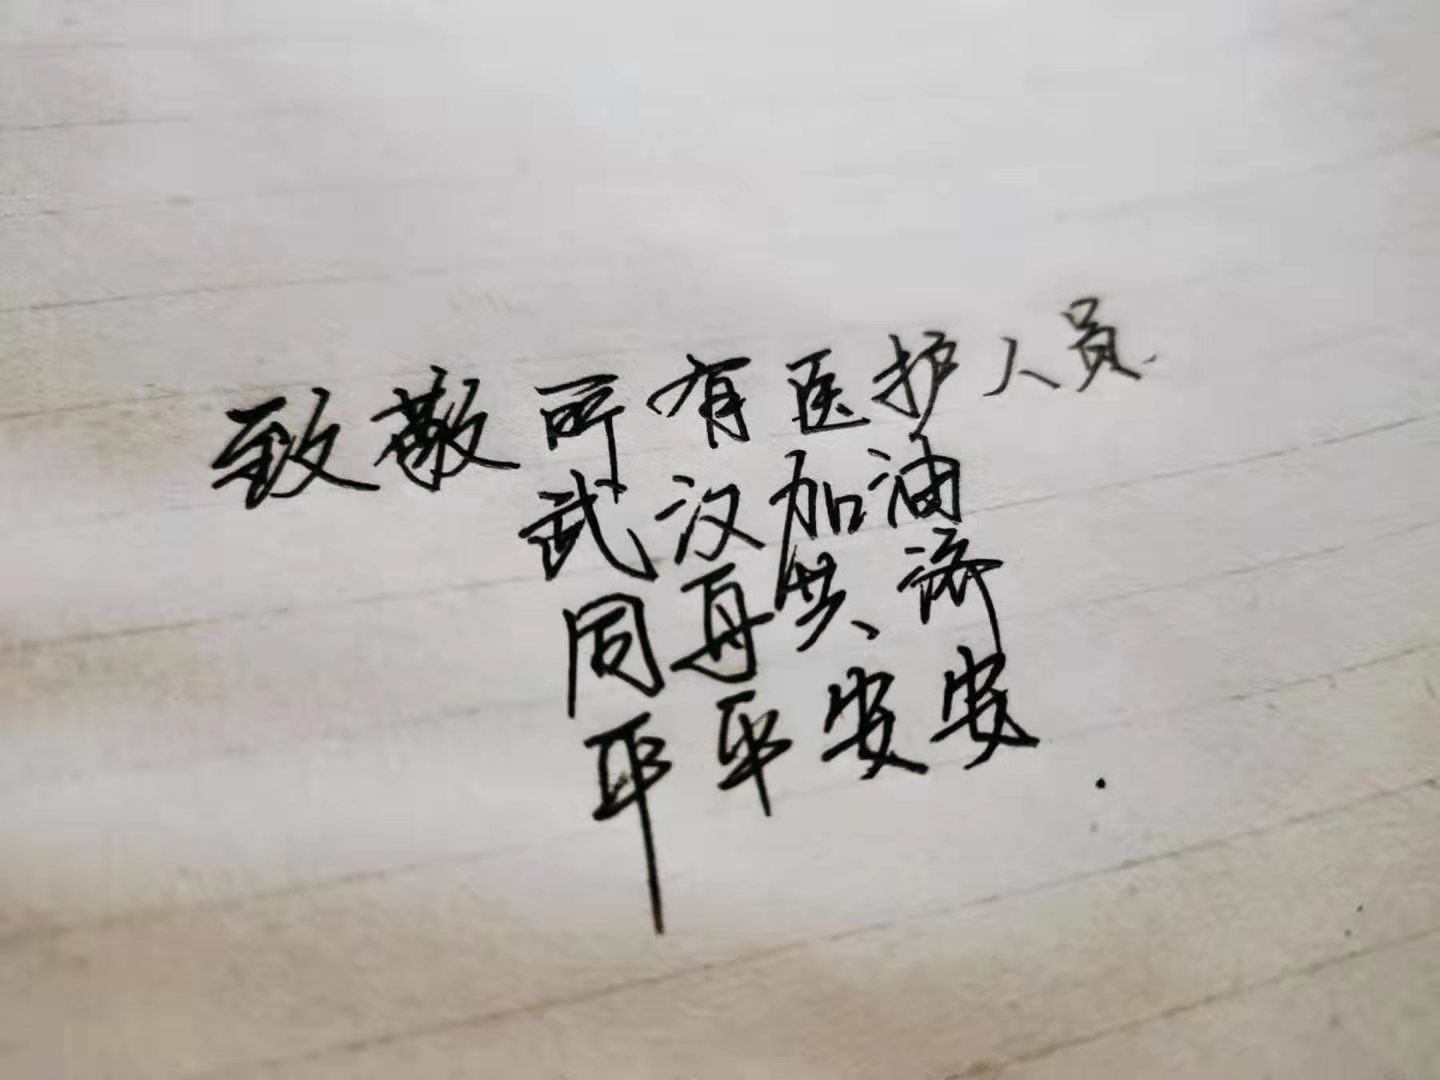 致敬所有医护人员
武汉加油
同舟共济
平平安安